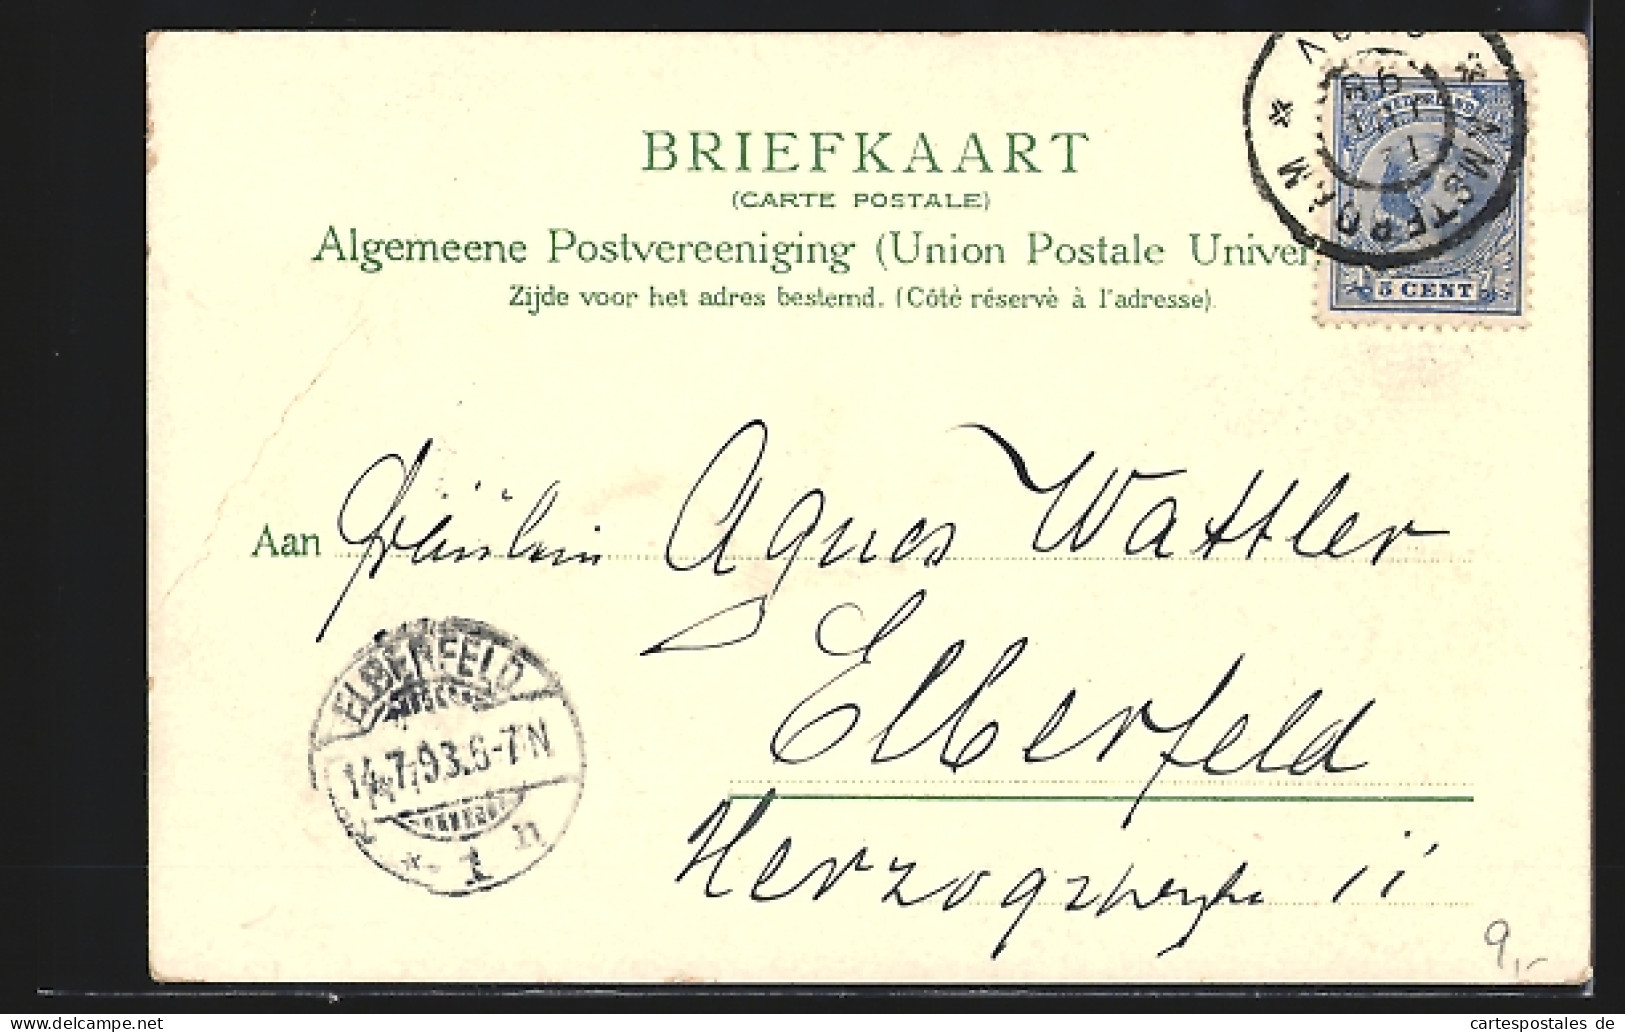 BRIEFKAART
(CARTE POSTALE)
Algemeene Postvereeniging (Union Postale Univer
Zijde voor het adres bestemd. (Côté réservé à l'adresse).
AMSTERDAM
NEDERLAND
5 CENT
Aan Fräulein Agnes Wattler
Elberfeld
ELBERFELD
14.7.93.6-7N
* 1 n
9,-
delcampe.net
cartespostales de